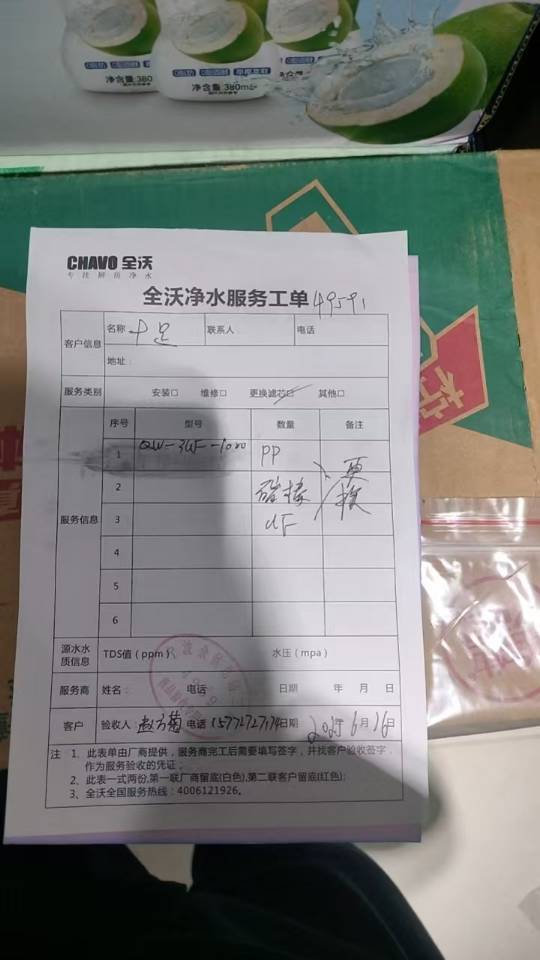 净含量 380
净含量 380m
CHAVO 全沃
专注厨房净水
全沃净水服务工单 49591
客户信息 名称 十足 联系人 电话
地址：
服务类别 安装□ 维修□ 更换滤芯☑ 其他□
服务信息 序号 型号 数量 备注
1 QW-3UF-1000 PP
2 碳棒 更换
3 UF
4
5
6
源水水质信息 TDS值（ppm） 水压（mpa）
服务商 姓名： 电话 日期 年 月 日
客户 验收人： 电话 日期 2025年6月16日
注 1、此表单由厂商提供，服务商完工后需要填写签字，并找客户验收签字，
作为服务验收的凭证；
2、此表一式两份,第一联厂商留底(白色),第二联客户留底(红色);
3、全沃全国服务热线：4006121926。